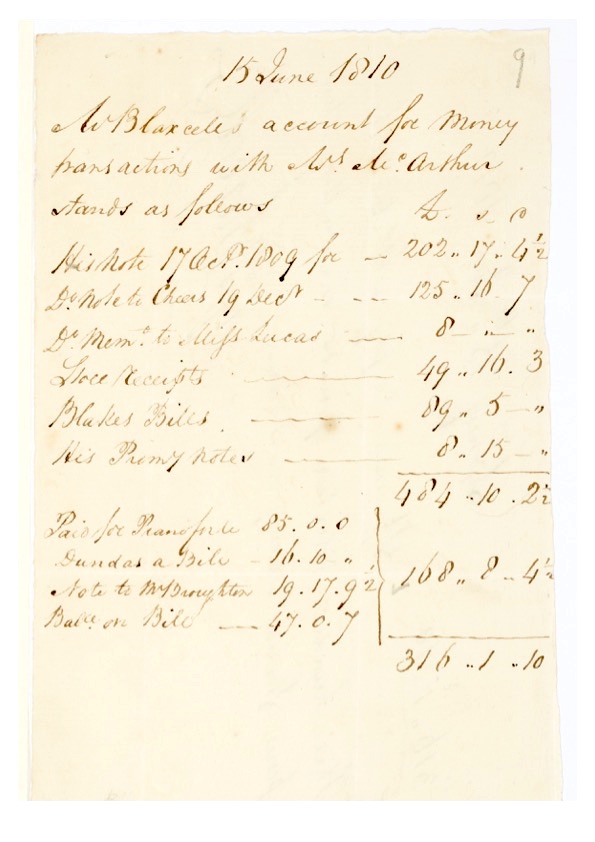 9
15 June 1810
Mr Blaxcell's account for Money
transactions with Mrs. McArthur
stands as follows
£. s. D
His Note 17 Octr. 1809 for — 202 " 17 " 4½
Do. Note to Cheers 19 Decr - -- 125 " 16 . 7
Do. Memo. to Miss Lucas — 8 — " — "
Store Receipts — 49 " 16 . 3
Blakes Bills — 89 " 5 — "
His Promy Notes — 8 " 15 — "
484 " 10 . 2½
Paid for Pianoforte 85 . 0 . 0
Dundas a Bill — 16 . 10 "
Note to Mr Broughton 19 . 17 . 9½
Balce. on Bill — 47 . 0 . 7
168 " 8 " 4½
316 " 1 " 10